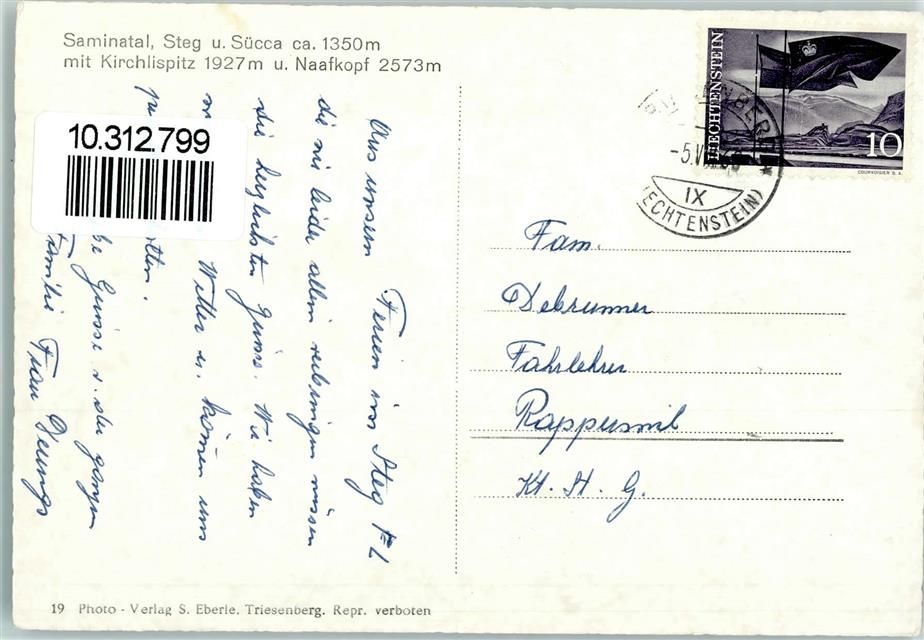 Saminatal, Steg u. Sücca ca. 1350m
mit Kirchlispitz 1927m u. Naafkopf 2573m
10.312.799
Aus unsern Ferien im Steg F-L
die wir leider allein verbringen müssen
die herzlichsten Grüsse. Wir haben
Wetter u. können uns
Grüsse v. der ganzen
Familie Frau
LIECHTENSTEIN
10
COURVOISIER S.A.
-5.V
IX
ECHTENSTEIN)
Fam.
Debrunner
Fahrlehrer
Rapperswil
Kt. St. G.
19 Photo - Verlag S. Eberle, Triesenberg. Repr. verboten